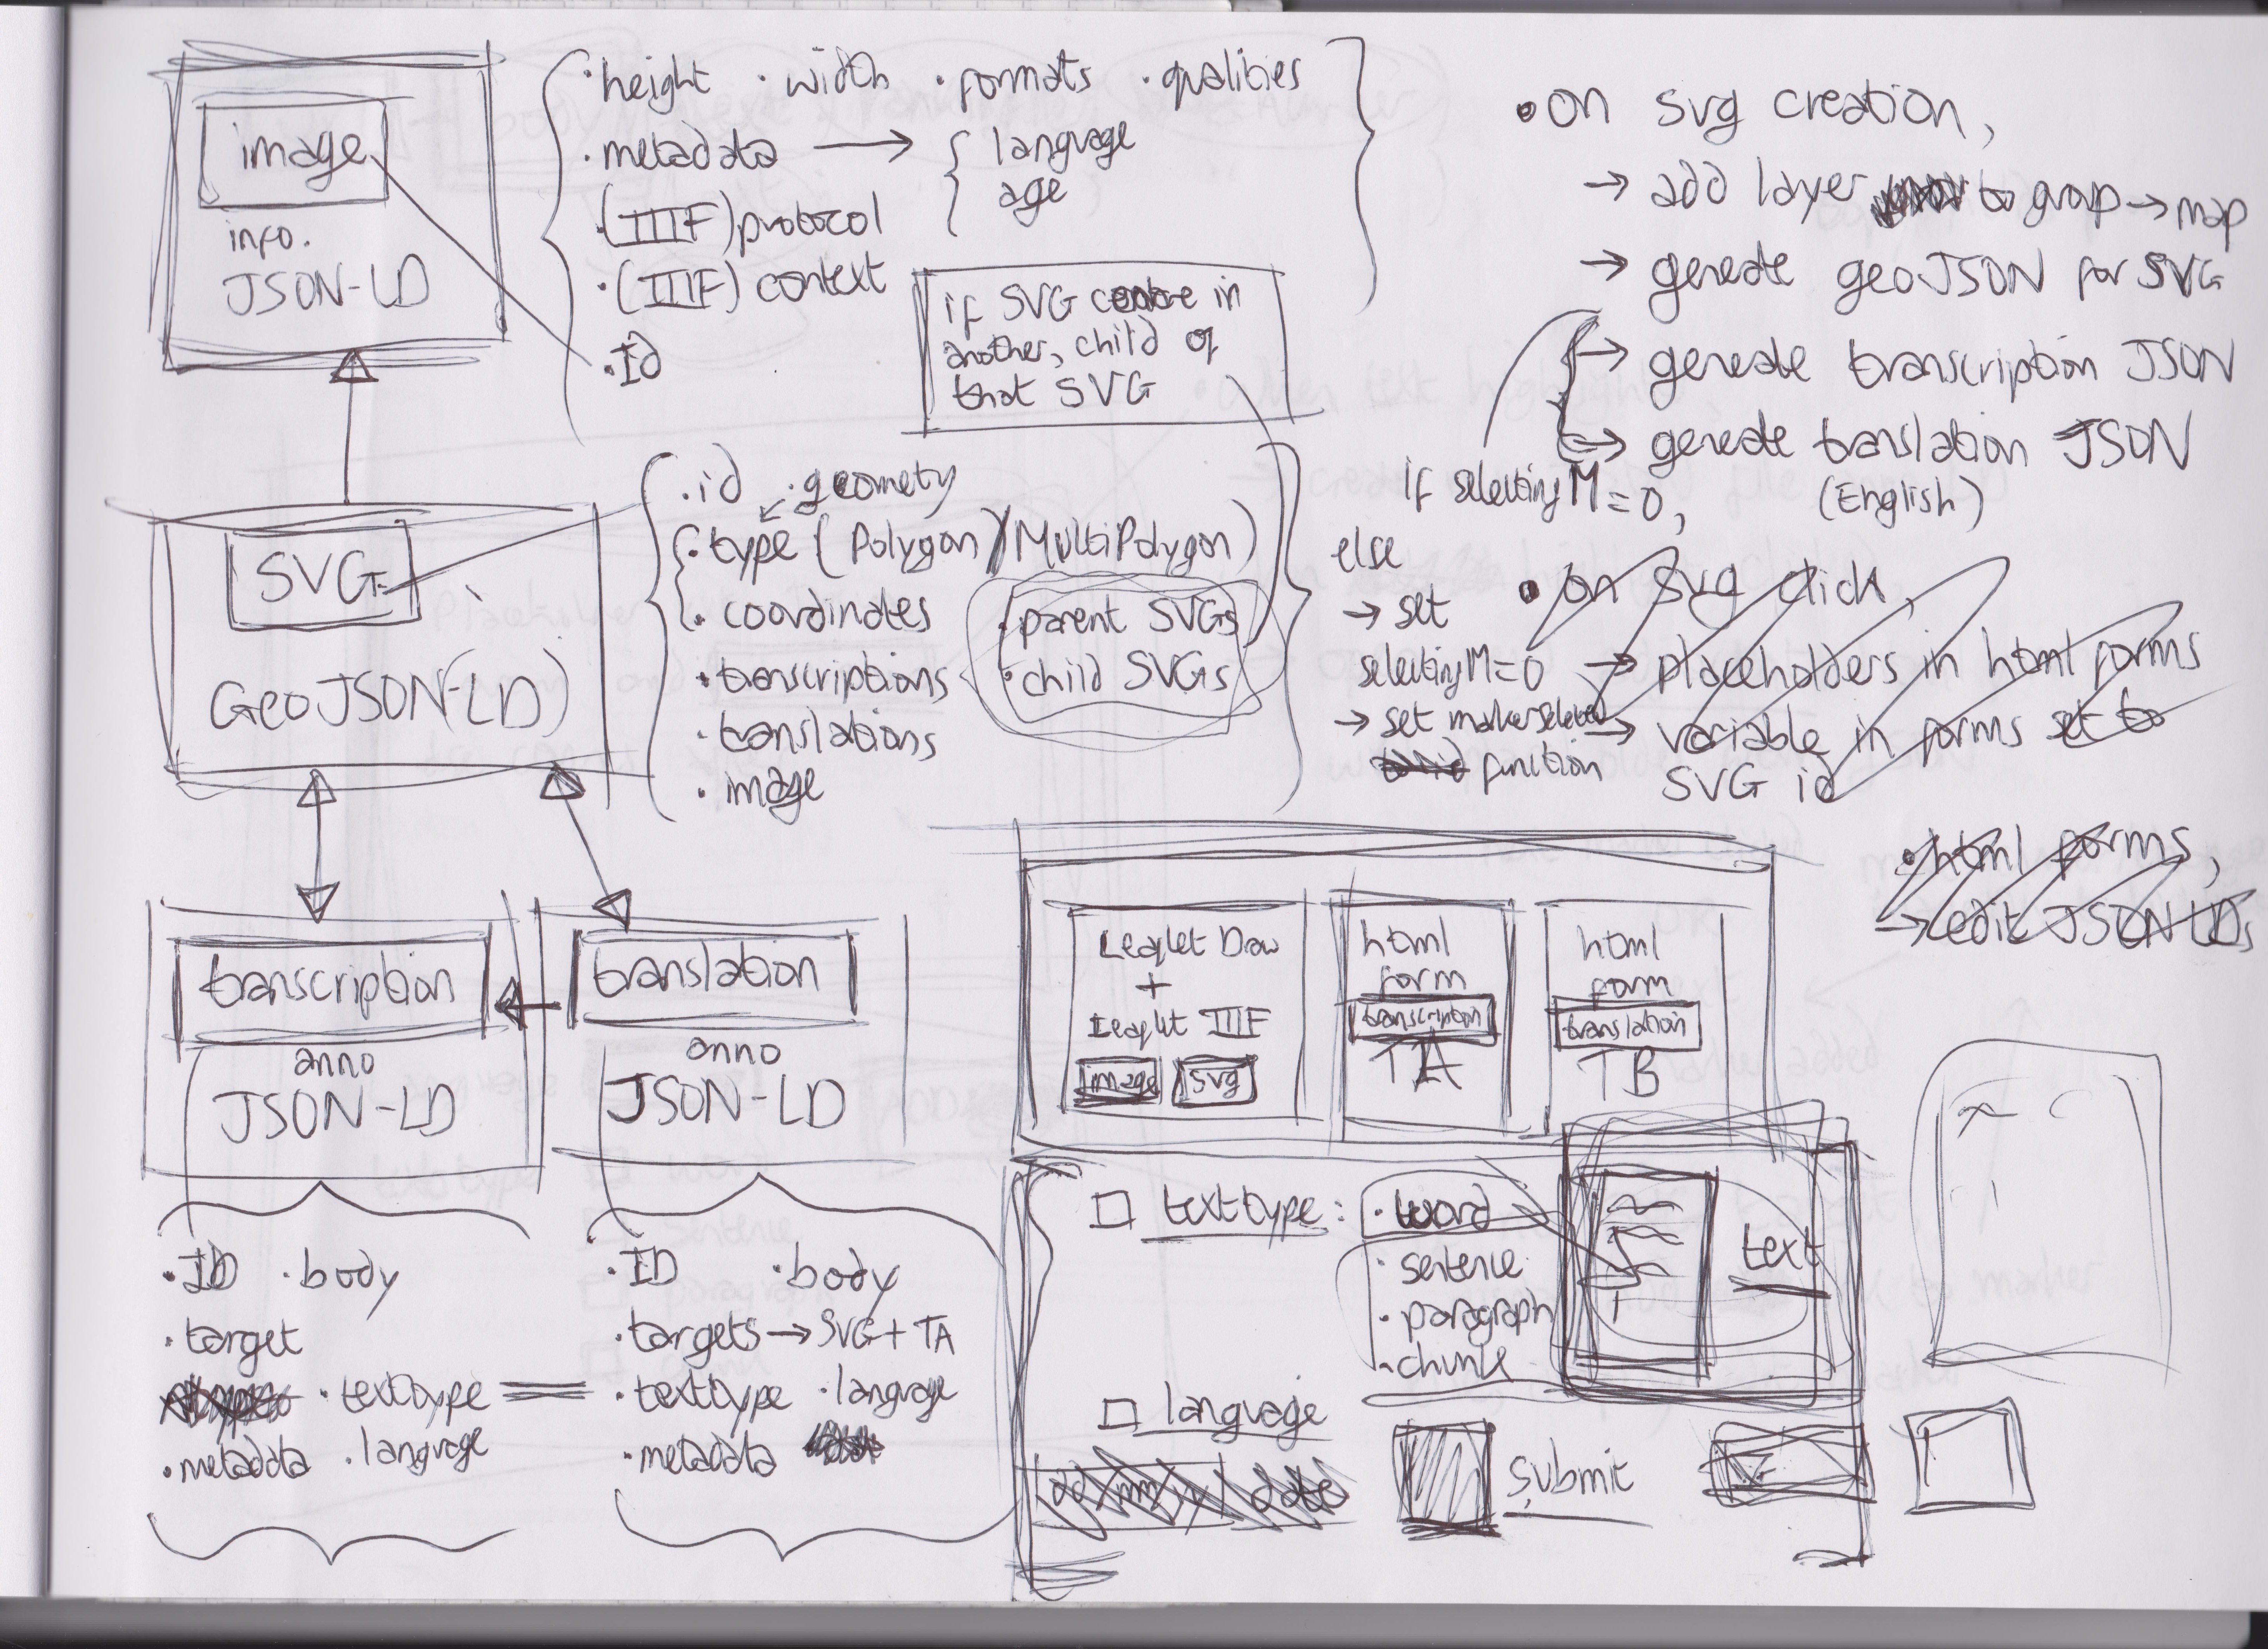 image
info.
JSON-LD
· height · width · formats · qualities
· metadata → { language
age
· (IIIF) protocol
· (IIIF) context
· Id
if SVG centre in
another, child of
that SVG
SVG
GeoJSON(-LD)
· id · geometry
· type (Polygon)/MultiPolygon)
· coordinates
· transcriptions
· translations
· image
· parent SVGs
· child SVGs
transcription
anno
JSON-LD
translation
anno
JSON-LD
· ID · body
· target
· texttype
· metadata · language
· ID · body
· targets → SVG + TA
· texttype · language
· metadata
• on svg creation,
→ add layer to group → map
→ generate geoJSON for SVG
→ generate transcription JSON
→ generate translation JSON
(English)
if selectingM = 0,
else
→ set
selectingM = 0
→ set markerSelected
function
• on svg click,
→ placeholders in html forms
→ variable in forms set to
SVG id
• html forms,
→ edit JSON LDs
Leaflet Draw
+
Leaflet IIIF
image svg
html
form
transcription
TA
html
form
translation
TB
□ texttype: · word
· sentence
· paragraph
· chunk
text
□ language
date
submit